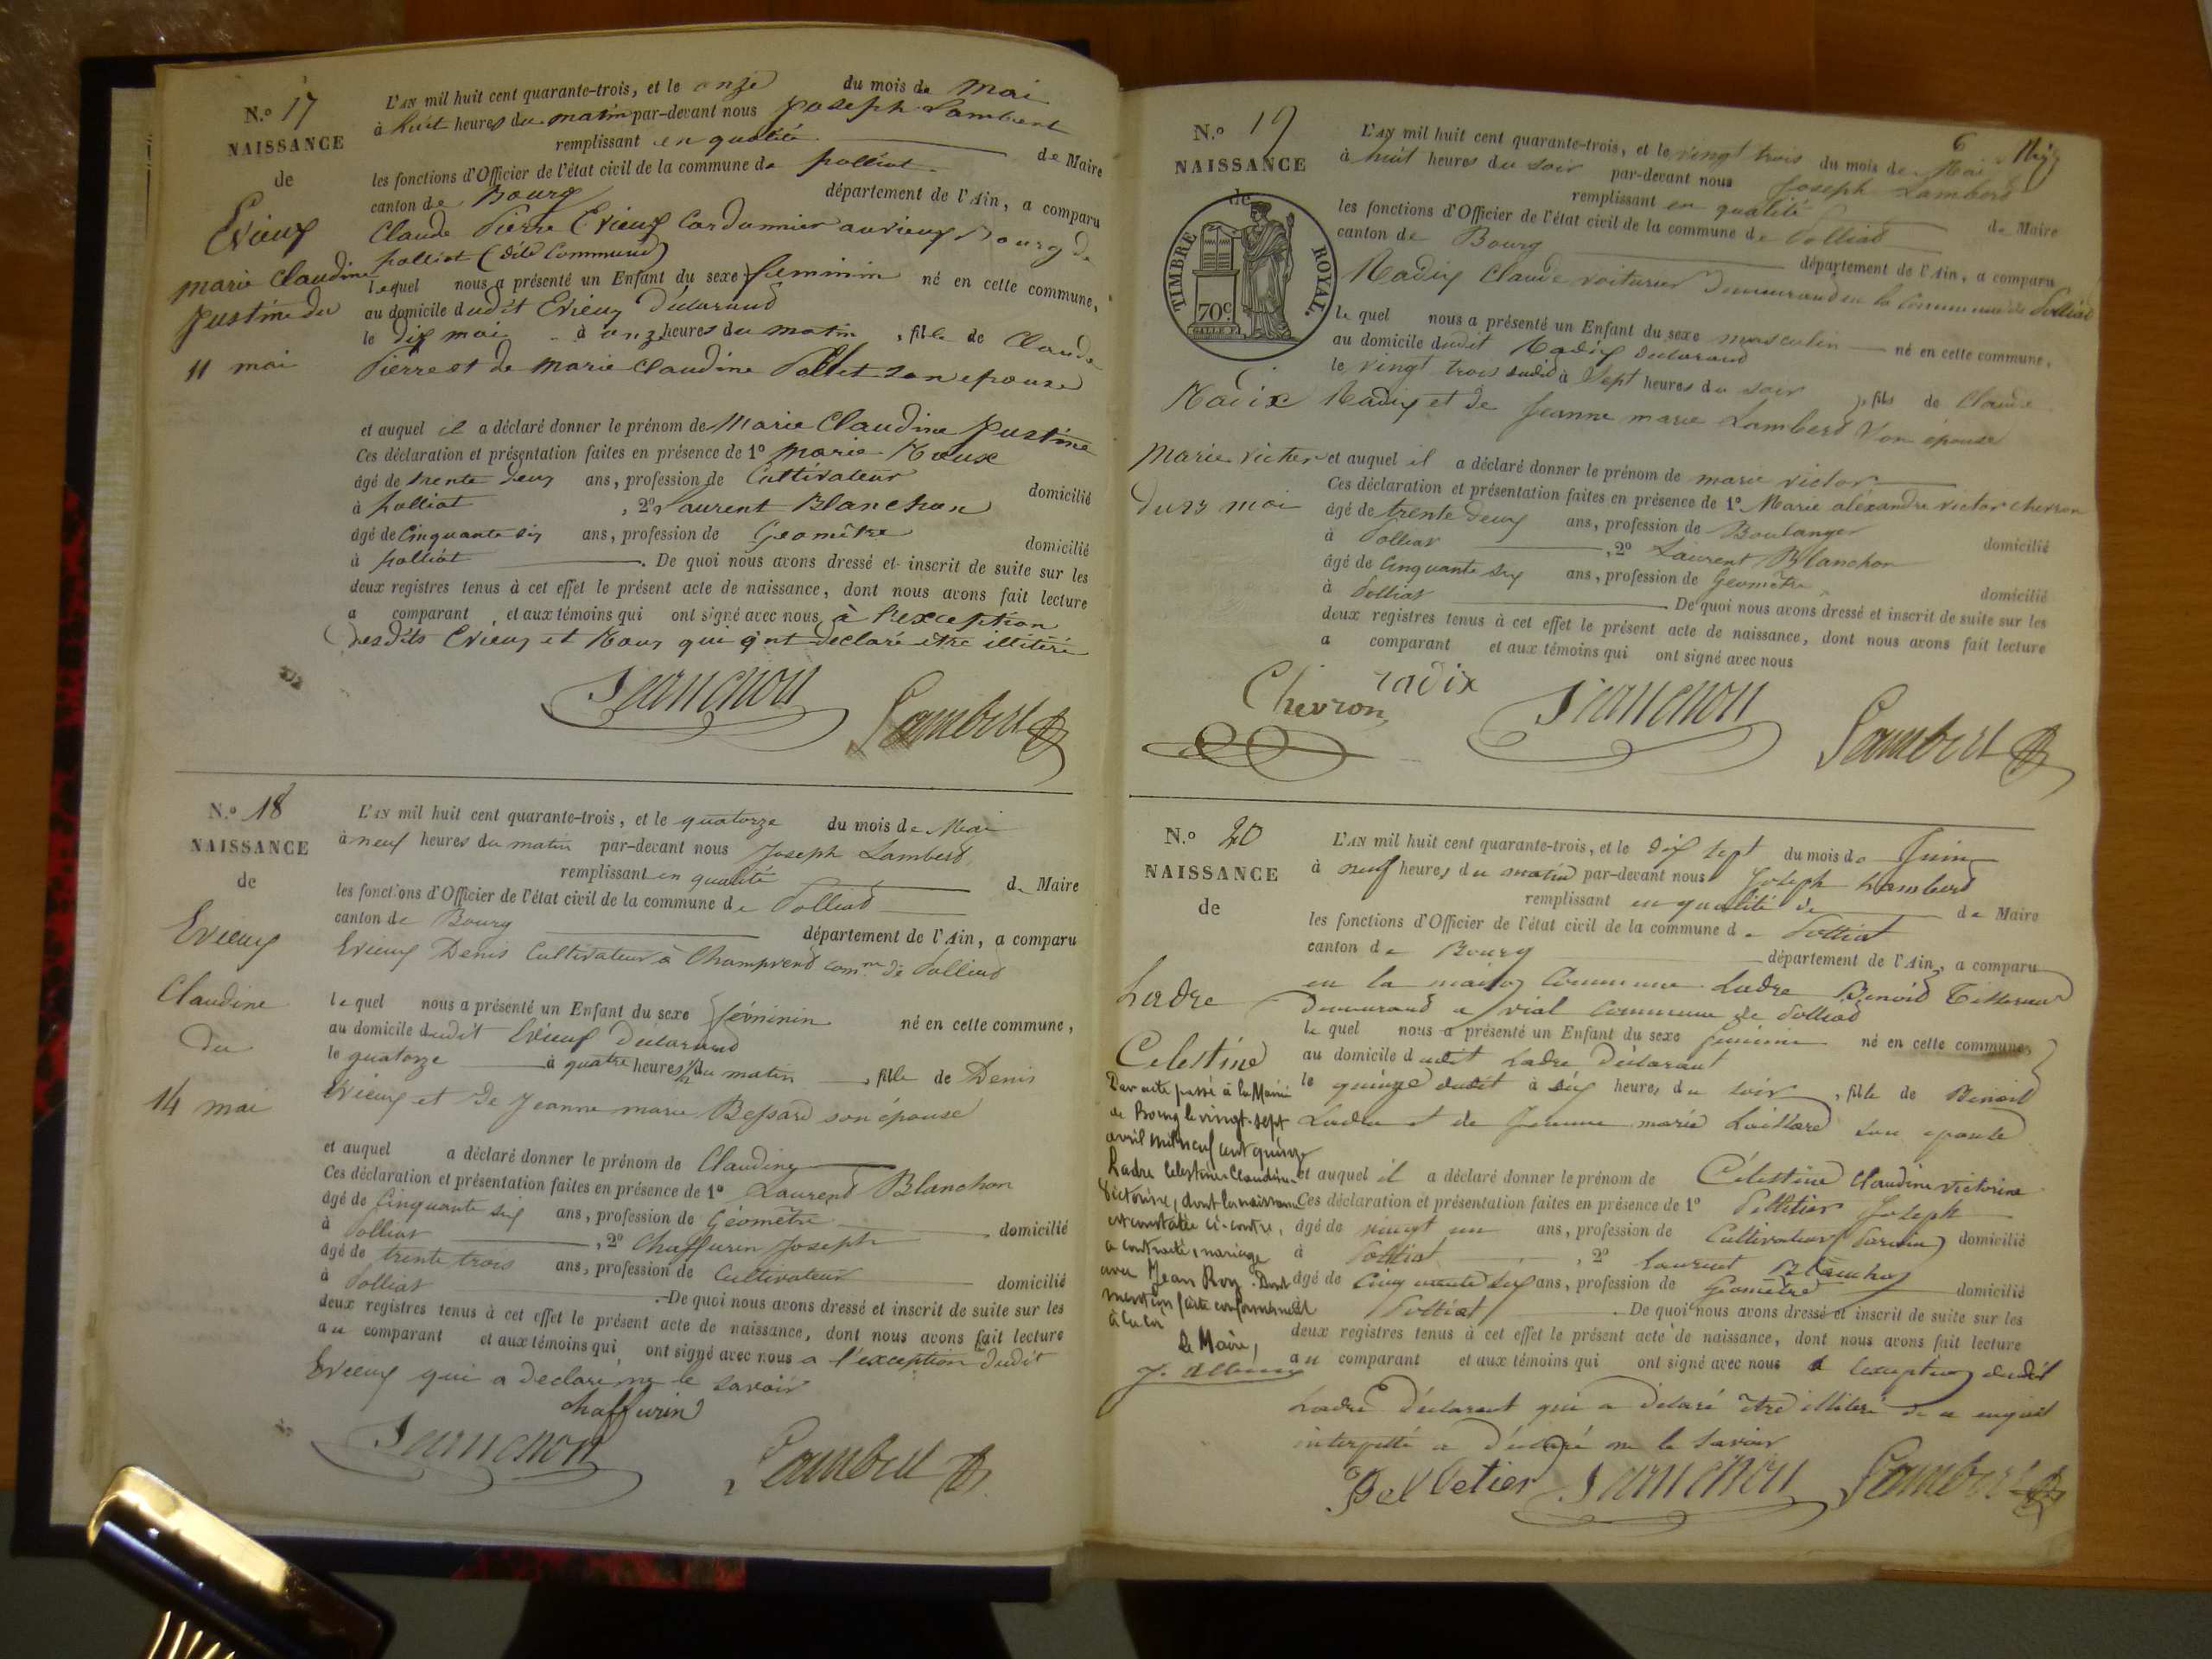 N.o 17
NAISSANCE
de
Evieux
marie Claudine
justine du
11 mai
L'AN mil huit cent quarante-trois, et le onze du mois de mai
à huit heures du matin par-devant nous joseph Lambert
remplissant en qualité de Maire
les fonctions d'Officier de l'état civil de la commune de polliat
canton de Bourg département de l'Ain, a comparu
Claude Pierre Evieux Cordonnier au vieux Bourg de
polliat (dite Commune)
lequel nous a présenté un Enfant du sexe feminin né en cette commune,
au domicile dudit Evieux déclarand
le dix mai à onze heures du matin, fille de Claude
Pierre et de marie Claudine Pollet son epouse
et auquel il a déclaré donner le prénom de Marie Claudine justine
Ces déclaration et présentation faites en présence de 1º marie Roux
âgé de trente deux ans, profession de Cultivateur domicilié
à polliat, 2º Laurent Blanchon
âgé de Cinquante six ans, profession de Géomêtre domicilié
à polliat. De quoi nous avons dressé et inscrit de suite sur les
deux registres tenus à cet effet le présent acte de naissance, dont nous avons fait lecture
a comparant, et aux témoins qui ont signé avec nous à l'exception
desdits Evieux et Roux qui ont declaré être illitéré
Blanchon Lambert
N.o 18
NAISSANCE
de
Evieux
Claudine
du
14 mai
L'AN mil huit cent quarante-trois, et le quatorze du mois de Mai
à neuf heures du matin par-devant nous Joseph Lambert
remplissant en qualité de Maire
les fonctions d'Officier de l'état civil de la commune de Polliat
canton de Bourg département de l'Ain, a comparu
Evieux Denis Cultivateur à Champrend comne de Polliat
lequel nous a présenté un Enfant du sexe féminin né en cette commune,
au domicile dudit Evieux Déclarand
le quatorze à quatre heures 1/2 du matin, fille de Denis
Evieux et de Jeanne marie Bessard son épouse
et auquel a déclaré donner le prénom de Claudine
Ces déclaration et présentation faites en présence de 1º Laurend Blanchon
âgé de Cinquante six ans, profession de Géomêtre domicilié
à Polliat, 2º Chaffurin Joseph
âgé de trente trois ans, profession de Cultivateur domicilié
à Polliat. De quoi nous avons dressé et inscrit de suite sur les
deux registres tenus à cet effet le présent acte de naissance, dont nous avons fait lecture
au comparant et aux témoins qui ont signé avec nous a l'exception dudit
Evieux qui a déclaré ne le savoir
chaffurin
Blanchon Lambert
6
N.o 19
NAISSANCE
de
TIMBRE ROYAL.
70c.
Radix
Marie victor
du 23 mai
L'AN mil huit cent quarante-trois, et le vingt trois du mois de Mai
à huit heures du soir par-devant nous Joseph Lambert
remplissant en qualité de Maire
les fonctions d'Officier de l'état civil de la commune de Polliat
canton de Bourg département de l'Ain, a comparu
Radix Claude voiturier Demeurand en la Commune de Polliat
lequel nous a présenté un Enfant du sexe masculin né en cette commune,
au domicile dudit Radix déclarand
le vingt trois dudit à Sept heures du soir, fils de Claude
Radix et de Jeanne marie Lambert Son épouse
et auquel il a déclaré donner le prénom de marie victor
Ces déclaration et présentation faites en présence de 1º Marie aléxandre victor chevron
âgé de trente deux ans, profession de Boulanger domicilié
à Polliat, 2º Laurent Blanchon
âgé de Cinquante six ans, profession de Géomêtre domicilié
à Polliat De quoi nous avons dressé et inscrit de suite sur les
deux registres tenus à cet effet le présent acte de naissance, dont nous avons fait lecture
a comparant et aux témoins qui ont signé avec nous
Chevron radix Blanchon Lambert
N.o 20
NAISSANCE
de
Ladre
Celestine
Par acte passé à la Mairie
de Bourg le vingt-sept
avril mil neuf cent quinze
Ladre Celestine Claudine
Victorine, dont la naissance
est constatée ci-contre,
a contracté mariage
avec Jean Roy. Dont
mention faite conformément
à la loi
Le Maire,
L'AN mil huit cent quarante-trois, et le dix sept du mois de Juin
à neuf heures du matin par-devant nous Joseph Lambert
remplissant en qualité de de Maire
les fonctions d'Officier de l'état civil de la commune de Polliat
canton de Bourg département de l'Ain, a comparu
en la maison Commune Ladre Benoid Tisserand
Demeurand a vial Commune de Polliat
lequel nous a présenté un Enfant du sexe féminin né en cette commune,
au domicile dudit Ladre Déclarant
le quinze dudit à six heures du soir, fille de Benoit
Ladre et de Jeanne marie son épouse
et auquel il a déclaré donner le prénom de Célestine Claudine victorine
Ces déclaration et présentation faites en présence de 1º Pelletier Joseph
âgé de vingt un ans, profession de Cultivateur domicilié
à Polliat, 2º Laurent Blanchon
âgé de Cinquante six ans, profession de Géomêtre domicilié
à Polliat. De quoi nous avons dressé et inscrit de suite sur les
deux registres tenus à cet effet le présent acte de naissance, dont nous avons fait lecture
au comparant et aux témoins qui ont signé avec nous a l'exception dudit
Ladre Déclarant qui a déclaré être illitéré de ce enquit
interpellé a déclaré ne le savoir
Pelletier Blanchon Lambert